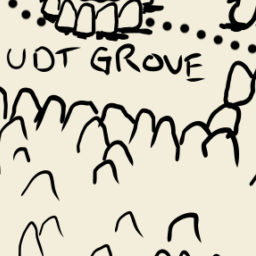 UDT GROVE